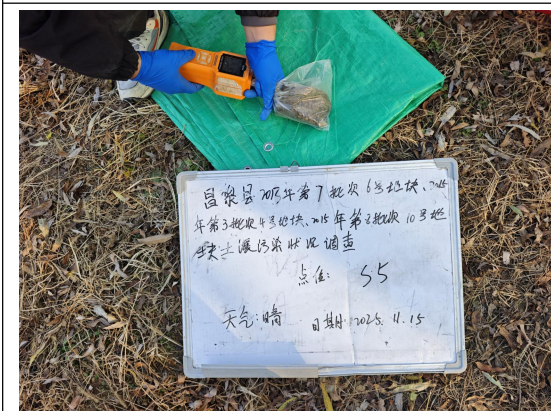 昌黎县2015年第7批次6号地块、2015
年第3批次4号地块、2015年第2批次10号地
块土壤污染状况调查
点位: S5
天气:晴 日期 2025.11.15